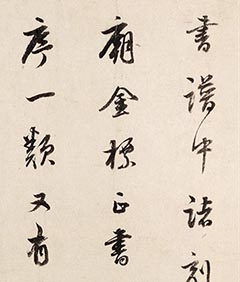 書譜中諸刻
廟金標正書
序一類又有